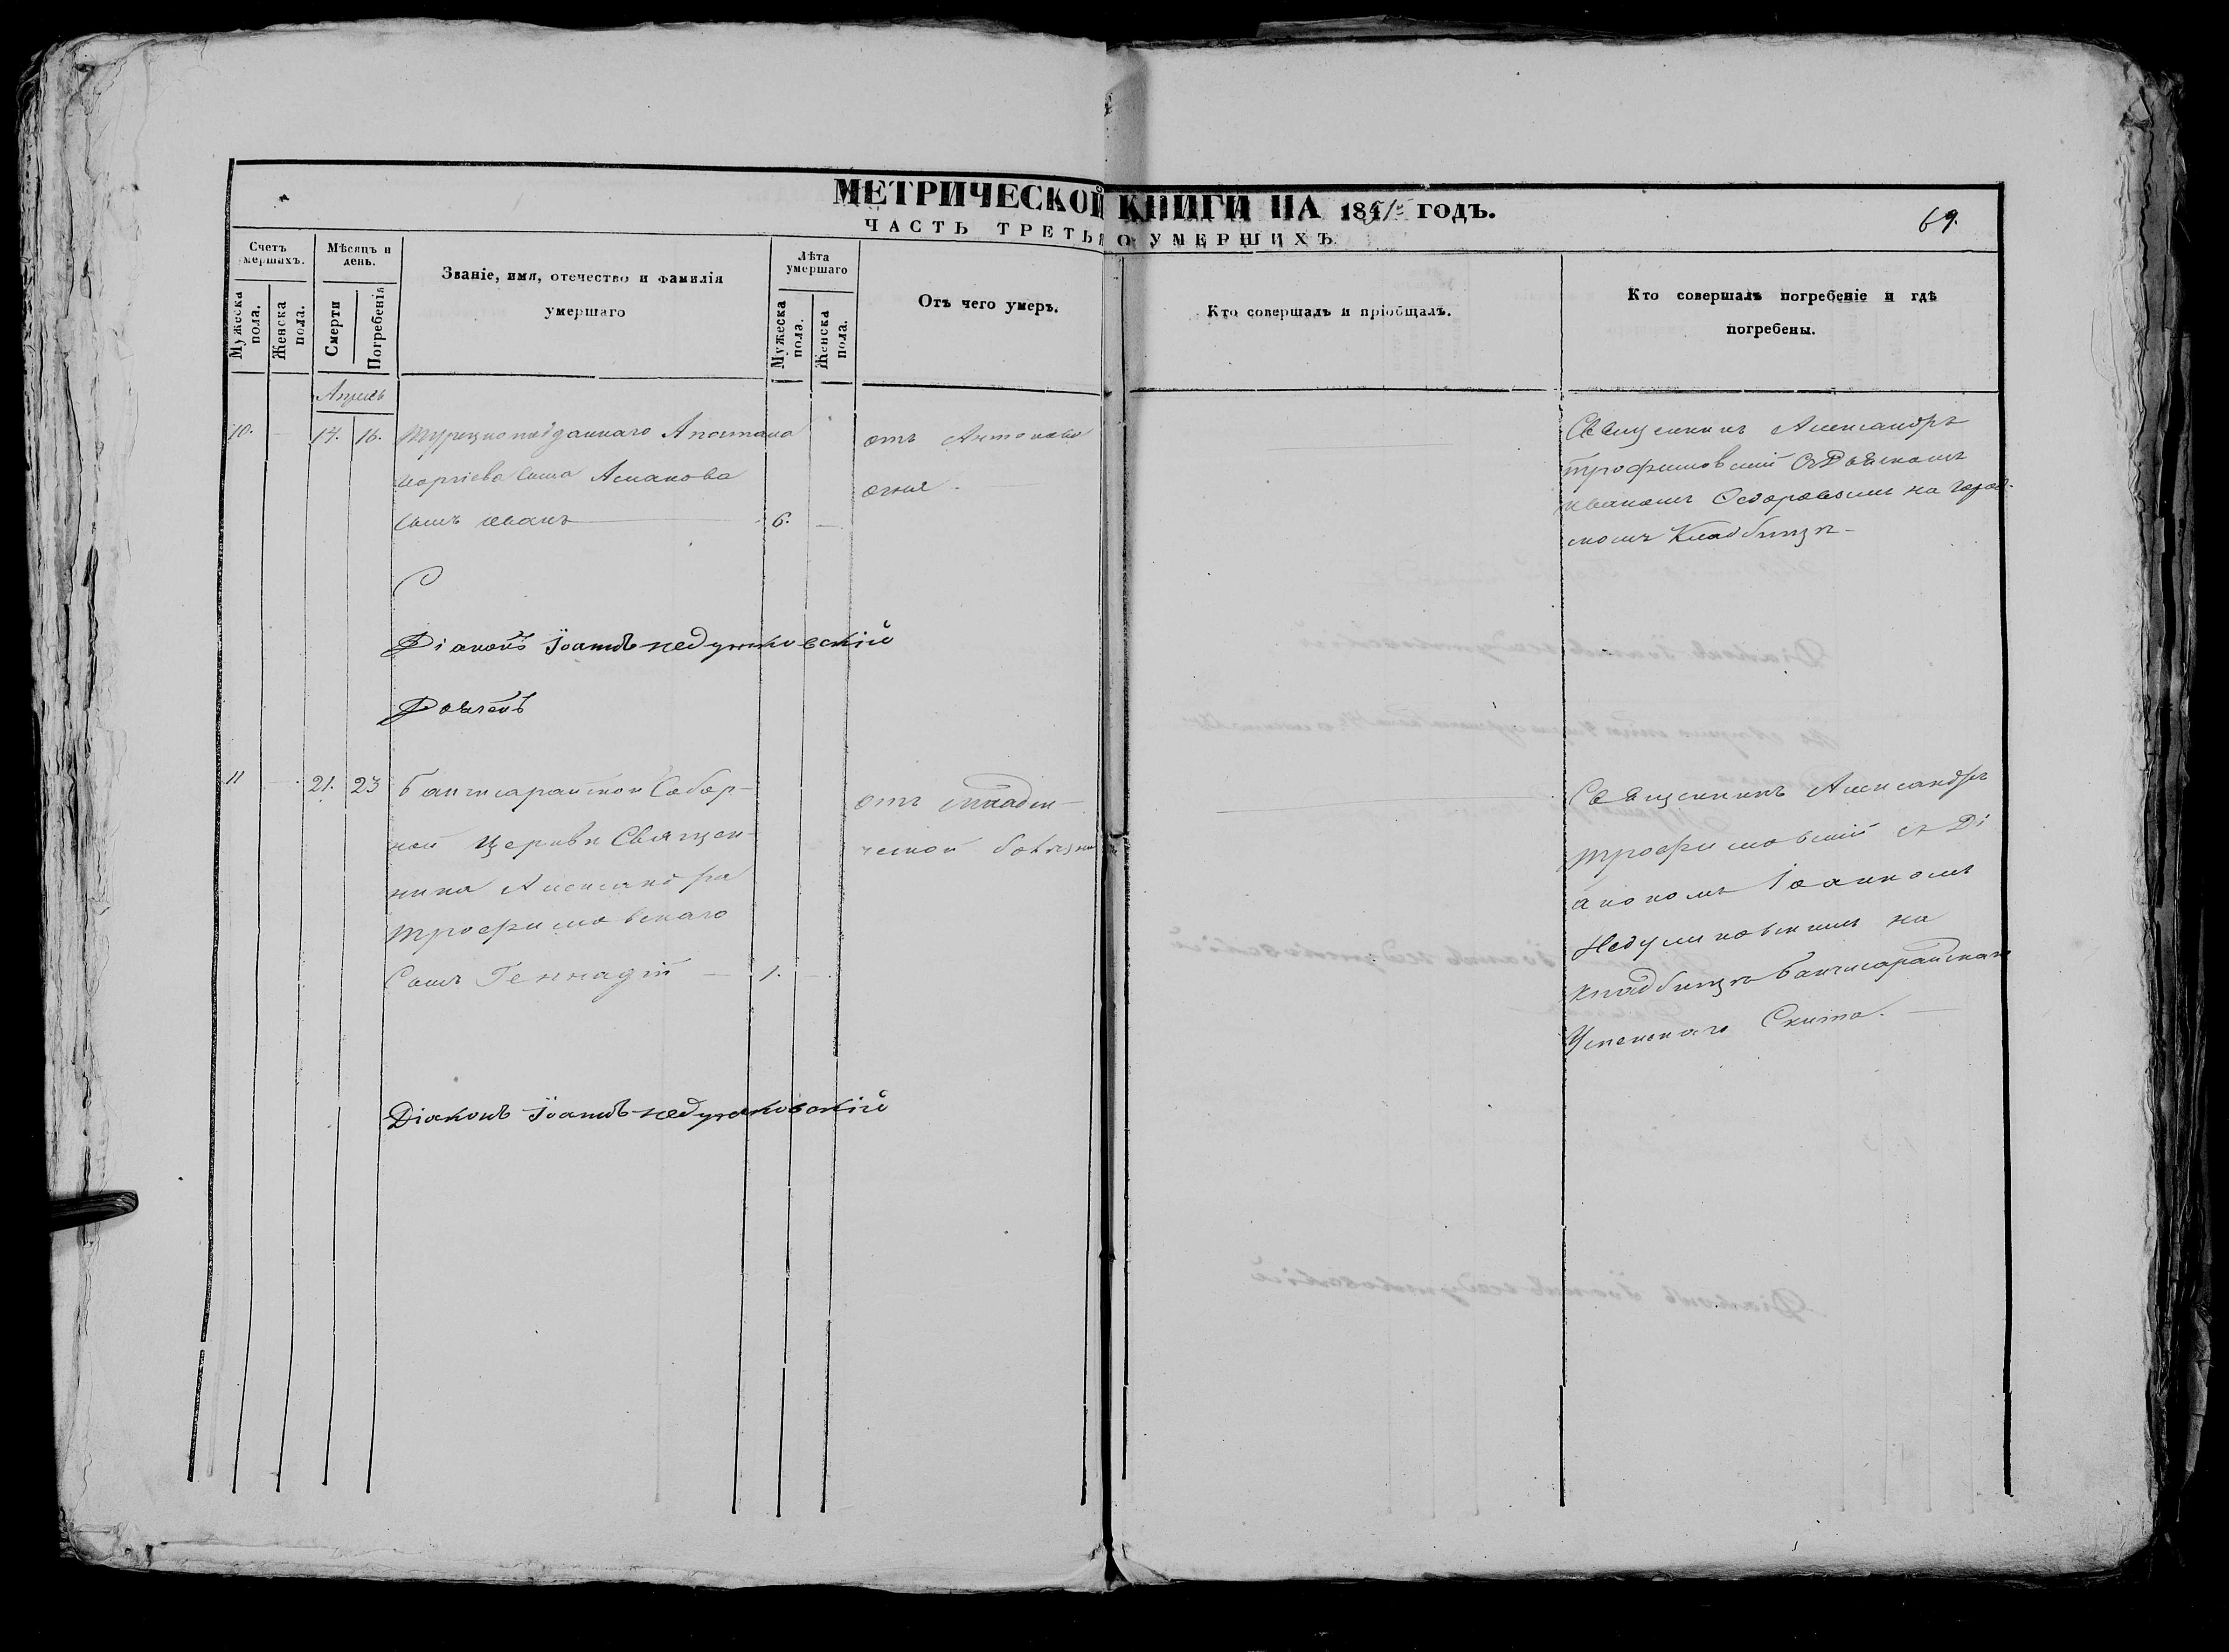 МЕТРИЧЕСКОЙ КНИГИ НА 1851 ГОДЪ.
ЧАСТЬ ТРЕТЬЯ О УМЕРШИХЪ.
69.
Счетъ умершихъ.
Мѣсяцъ и день.
Званіе, имя, отечество и фамилія умершаго
Лѣта умершаго
Отъ чего умеръ.
Кто совершалъ и пріобщалъ.
Кто совершалъ погребеніе и гдѣ погребены.
Мужеска пола.
Женска пола.
Смерти
Погребенія
Мужеска пола.
Женска пола.
Апрель
10. 14. 16. Турецкоподданнаго
сына
сынъ Иванъ 6.
отъ Антонова
огня
Священникъ Александръ
Трофимовскій
на город-
скомъ Кладбищѣ
Діаконъ Іоаннъ Недумковскій
11 21. 23 Бахчисарайской Собор-
ной Церкви Священ-
ника Александра
Трофимовскаго
Сынъ Геннадій 1.
отъ младен-
ческой болѣзни
Священникъ Александръ
Трофимовскій съ Ді
акономъ Іоанномъ
Недумковскимъ на
кладбищѣ Бахчисарайскаго
Успенскаго Скита.
Діаконъ Іоаннъ Недумковскій